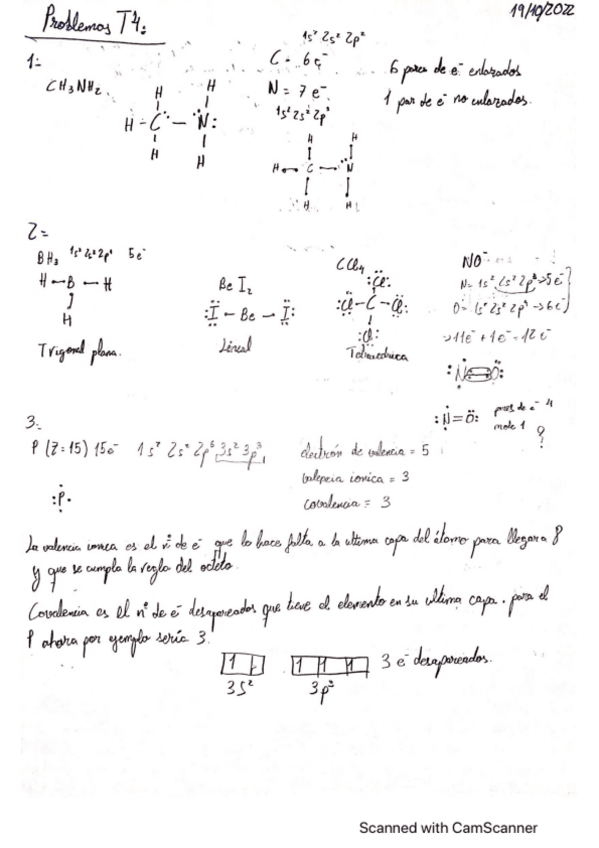 Problemas T4:
19/10/2022
1:
CH3NH2.
1s² 2s² 2p²
C = 6e⁻
N = 7e⁻
1s² 2s² 2p³
6 pares de e⁻ enlazados
1 par de e⁻ no enlazados.
H H
H - C - N:
H H
H H
H - C - N
H H
2=
BH3 1s² 2s² 2p¹ 5e⁻
H - B - H
H
Trigonal plana.
Be I2
:I - Be - I:
Lineal
CCl4
:Cl:
:Cl - C - Cl:
:Cl:
Tetraedrica
NO⁻
N = 1s² 2s² 2p³ → 5e⁻
O = 1s² 2s² 2p⁴ → 6e⁻
→ 11e⁻ + 1e⁻ = 12e⁻
:N O:
:N = O:
pares de e⁻ 4
?
3.
P (Z=15) 15e⁻ 1s² 2s² 2p⁶ 3s² 3p³
:P·
electrón de valencia = 5
valencia ionica = 3
covalencia = 3
La valencia ionica es el nº de e⁻ que le hace falta a la ultima capa del átomo para llegar a 8
y que se cumpla la regla del octeto.
Covalencia es el nº de e⁻ desapareados que tiene el elemento en su ultima capa. para el
P ahora por ejemplo seria 3.
3s² 3p³
3 e⁻ desapareados.
Scanned with CamScanner